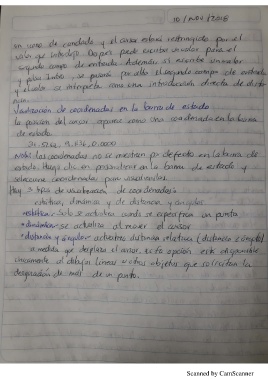 10/nov/2018
un icono de candado y el cursor estara restringido por el
valor que introdujo. Despues puede escribir un valor para el
segundo campo de entrada. Además si escribe un valor
y pulsa Intro, se pasará por alto el segundo campo de entrada
y el valor se interpreta como una introducción directa de distancia
Visualización de coordenadas en la barra de estado
la posición del cursor aparece como una coordenada en la barra
de estado.
Nota: las coordenadas no se muestran por defecto en la barra de
estado. Haga clic en personalizar en la barra de estado y
seleccione coordenadas para visualizarlas.
Hay 3 tipos de visualización de coordenadas:
estática, dinámica y de distancia y angulo
estática: Solo se actualiza cuando se especifica un punto
dinámica: se actualiza al mover el cursor
distancia y angulo: actualiza distancia relativa (distancia<angulo)
a medida que desplaza el cursor. Esta opción está disponible
unicamente al dibujar lineas u otros objetos que solicitan la
designación de más de un punto.
Scanned by CamScanner